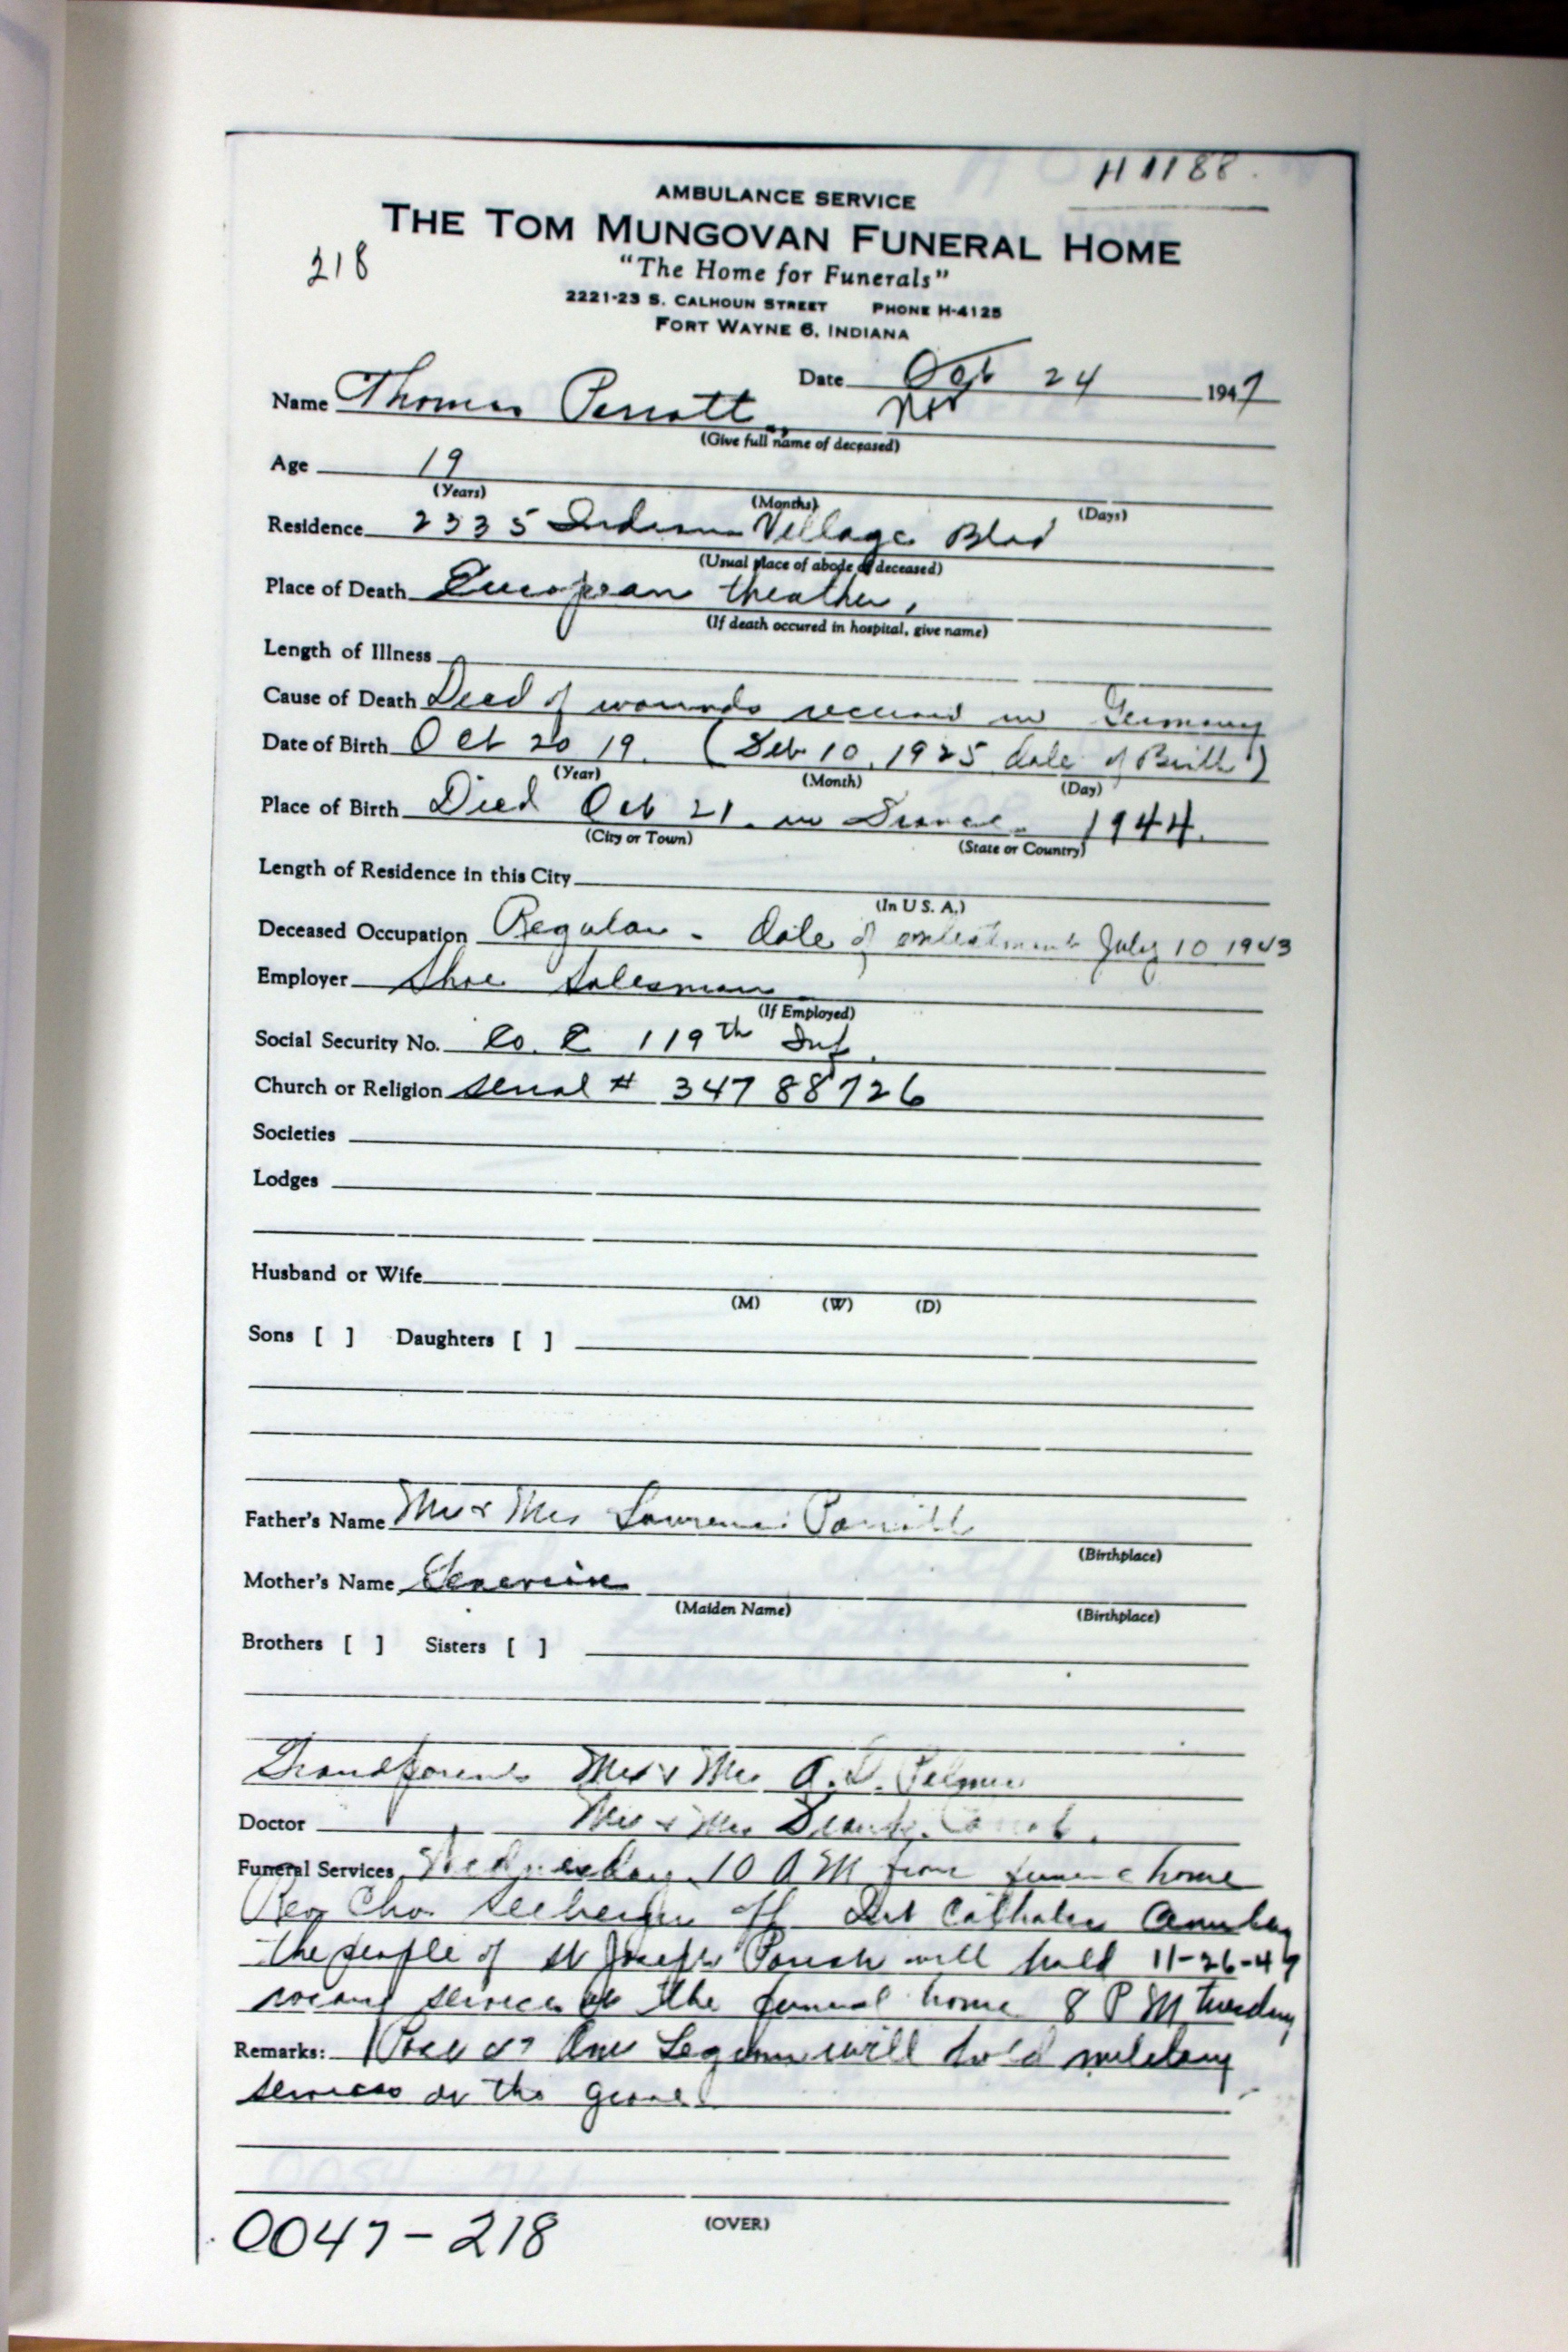 H 1188
AMBULANCE SERVICE
THE TOM MUNGOVAN FUNERAL HOME
218
"The Home for Funerals"
2221-23 S. CALHOUN STREET PHONE H-4125
FORT WAYNE 6, INDIANA
Date Oct 24 1947
Nov
Name Thomas Parrott
(Give full name of deceased)
Age 19
(Years) (Months) (Days)
Residence 2335 Indian Village Blvd
(Usual place of abode of deceased)
Place of Death European theather,
(If death occured in hospital, give name)
Length of Illness
Cause of Death Died of wounds received in Germany
Date of Birth Oct 20 19. (Feb 10, 1925 date of Birth)
(Year) (Month) (Day)
Place of Birth Died Oct 21. in France. 1944.
(City or Town) (State or Country)
Length of Residence in this City
(In U S. A.)
Deceased Occupation Regular - date of enlistment July 10 1943
Employer Shoe Salesman
(If Employed)
Social Security No. Co. E 119th Inf.
Church or Religion Serial # 34788726
Societies
Lodges
Husband or Wife
(M) (W) (D)
Sons [ ] Daughters [ ]
Father's Name Mr & Mrs Lawrence
(Birthplace)
Mother's Name
(Maiden Name) (Birthplace)
Brothers [ ] Sisters [ ]
Grandparents Mr & Mrs A. D.
Doctor Mr & Mrs Frank
Funeral Services Wednesday 10 AM from funeral home
Rev Chas off Int Catholic
the people of St Joseph Parish will hold 11-26-47
services at the funeral home 8 PM Tuesday
Remarks: Post 47 Am Legion will hold military
services at the grave
(OVER)
0047-218